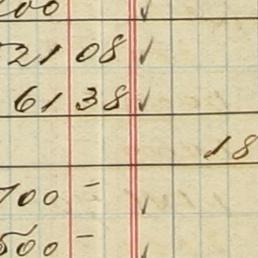 00 ✓
21 08 ✓
61 38 ✓
18
700 - ✓
500 - ✓